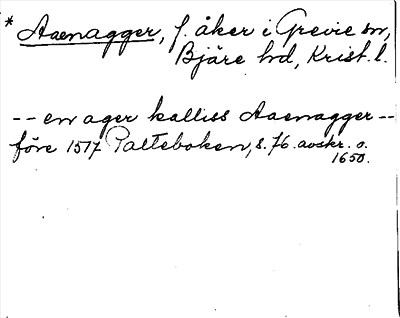 * Aaenagger, f. åker i Grevie sn,
Bjäre hd, Krist. l.
-- en ager kalliss Aaenagger --
före 1517 Palteboken, s. 76. avskr. o.
1650.